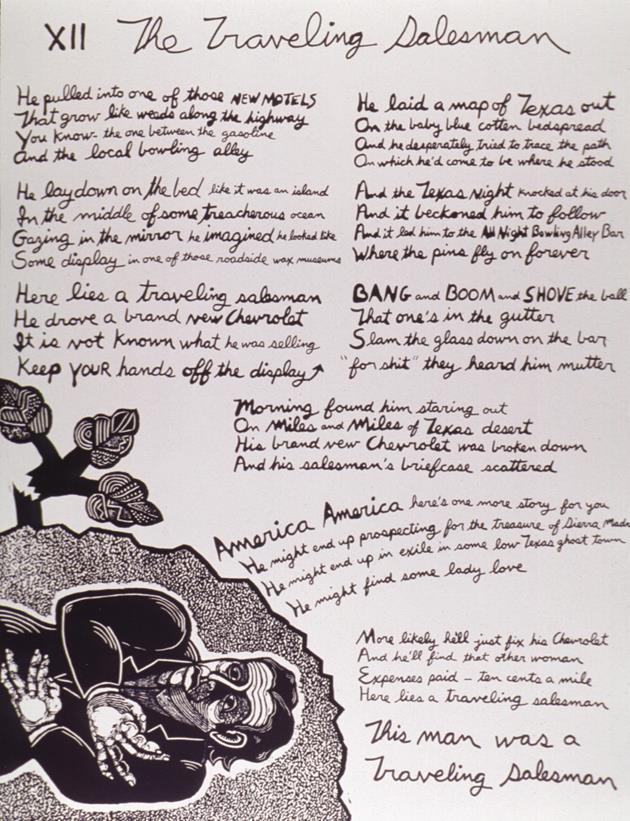 XII The Traveling Salesman
He pulled into one of those NEW MOTELS
That grow like weeds along the highway
You know- the one between the gasoline
And the local bowling alley
He lay down on the bed like it was an island
In the middle of some treacherous ocean
Gazing in the mirror he imagined he looked like
Some display in one of those roadside wax museums
Here lies a traveling salesman
He drove a brand new Chevrolet
It is not known what he was selling
Keep YOUR hands off the display
He laid a map of Texas out
On the baby blue cotten bedspread
And he desperately tried to trace the path
On which he'd come to be where he stood
And the Texas Night knocked at his door
And it beckoned him to follow
And it led him to the All Night Bowling Alley Bar
Where the pins fly on forever
BANG and BOOM and SHOVE the ball
That one's in the gutter
Slam the glass down on the bar
"for shit" they heard him mutter
Morning found him staring out
On Miles and Miles of Texas desert
His brand new Chevrolet was broken down
And his salesman's briefcase scattered
America America here's one more story for you
He might end up prospecting for the treasure of Sierra Madr
He might end up in exile in some low Texas ghost town
He might find some lady love
More likely he'll just fix his Chevrolet
And he'll find that other woman
Expenses paid – ten cents a mile
Here lies a traveling salesman
This man was a
Traveling Salesman